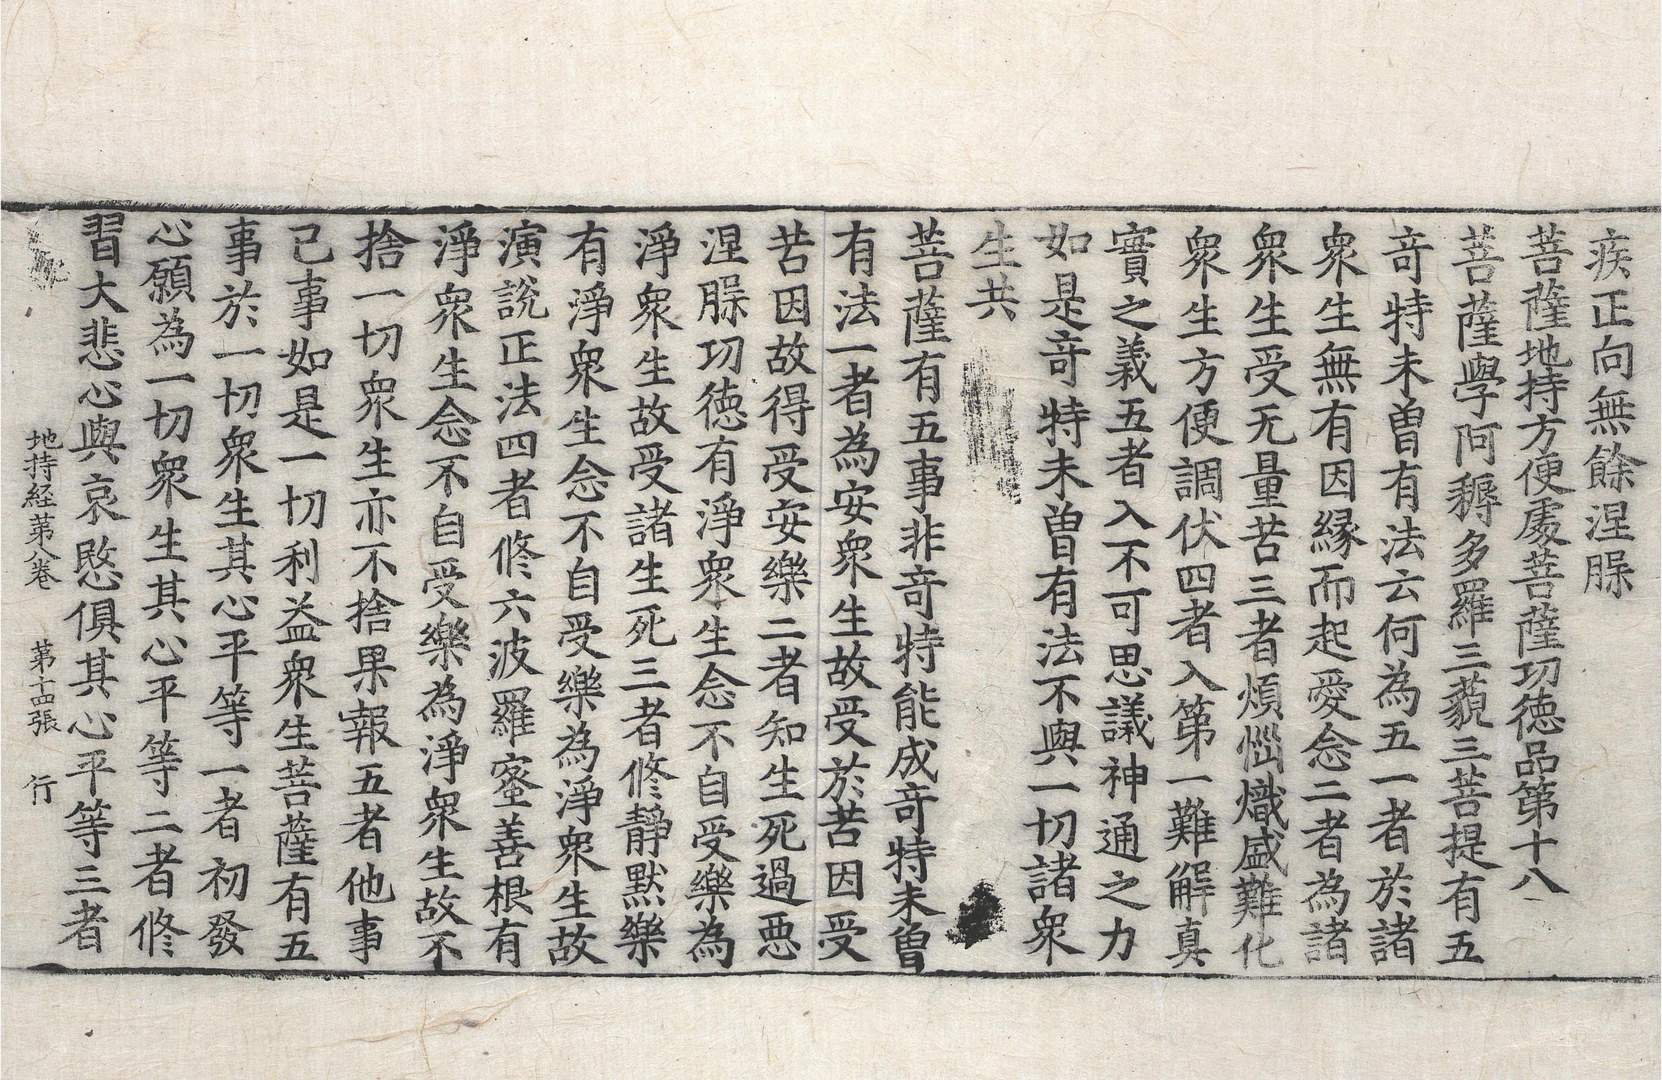 疾正向無餘涅槃
菩薩地持方便處菩薩功德品第十八
菩薩學阿耨多羅三藐三菩提有五
竒特未曽有法云何為五一者於諸
衆生無有因縁而起愛念二者為諸
衆生受无量苦三者煩惱熾盛難化
衆生方便調伏四者入第一難解真
實之義五者入不可思議神通之力
如是竒特未曽有法不與一切諸衆
生共
菩薩有五事非竒特能成竒特未曽
有法一者為安衆生故受於苦因受
苦因故得受安樂二者知生死過惡
涅槃功德有淨衆生念不自受樂為
淨衆生故受諸生死三者修靜默樂
有淨衆生念不自受樂為淨衆生故
演說正法四者修六波羅蜜善根有
淨衆生念不自受樂為淨衆生故不
捨一切衆生亦不捨果報五者他事
己事如是一切利益衆生菩薩有五
事於一切衆生其心平等一者初發
心願為一切衆生其心平等二者修
習大悲心與哀愍俱其心平等三者
地持経苐八卷 苐十四張 行